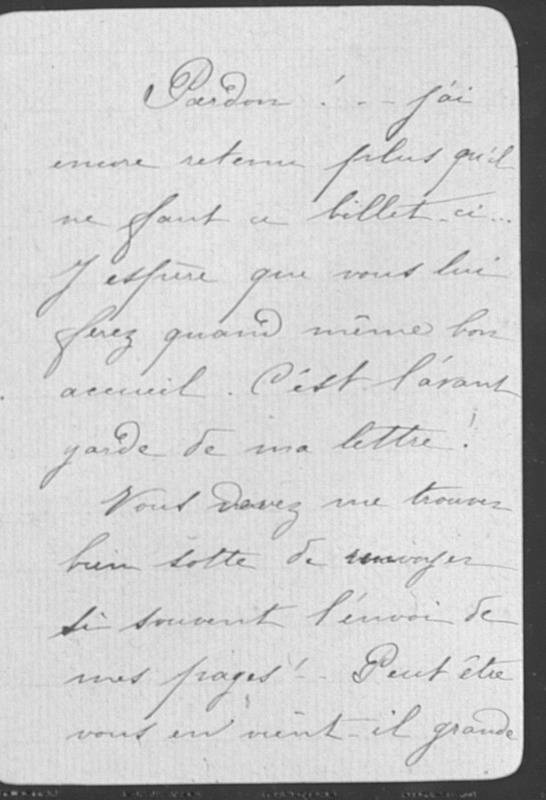 Pardon ! . - j'ai
encore retenu plus qu'il
ne faut ce billet-ci...
J'espère que vous lui
ferez quand même bon
accueil . C'est l'avant
garde de ma lettre !
Vous devez me trouver
bien sotte de
si souvent l'envoi de
mes pages ! - Peut être
vous en vient-il grande